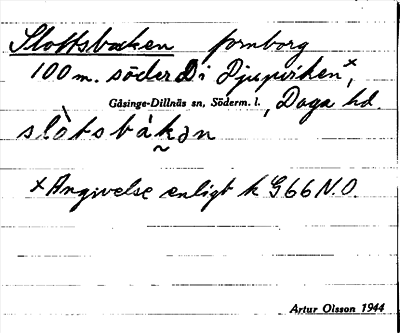 Slottsbacken fornborg
100 m. söder D i Djupviken×,
Gåsinge-Dillnäs sn, Söderm. l., Daga hd.
slòtsbákə̰n
× Angivelse enligt k G66 N.O.
Artur Olsson 1944